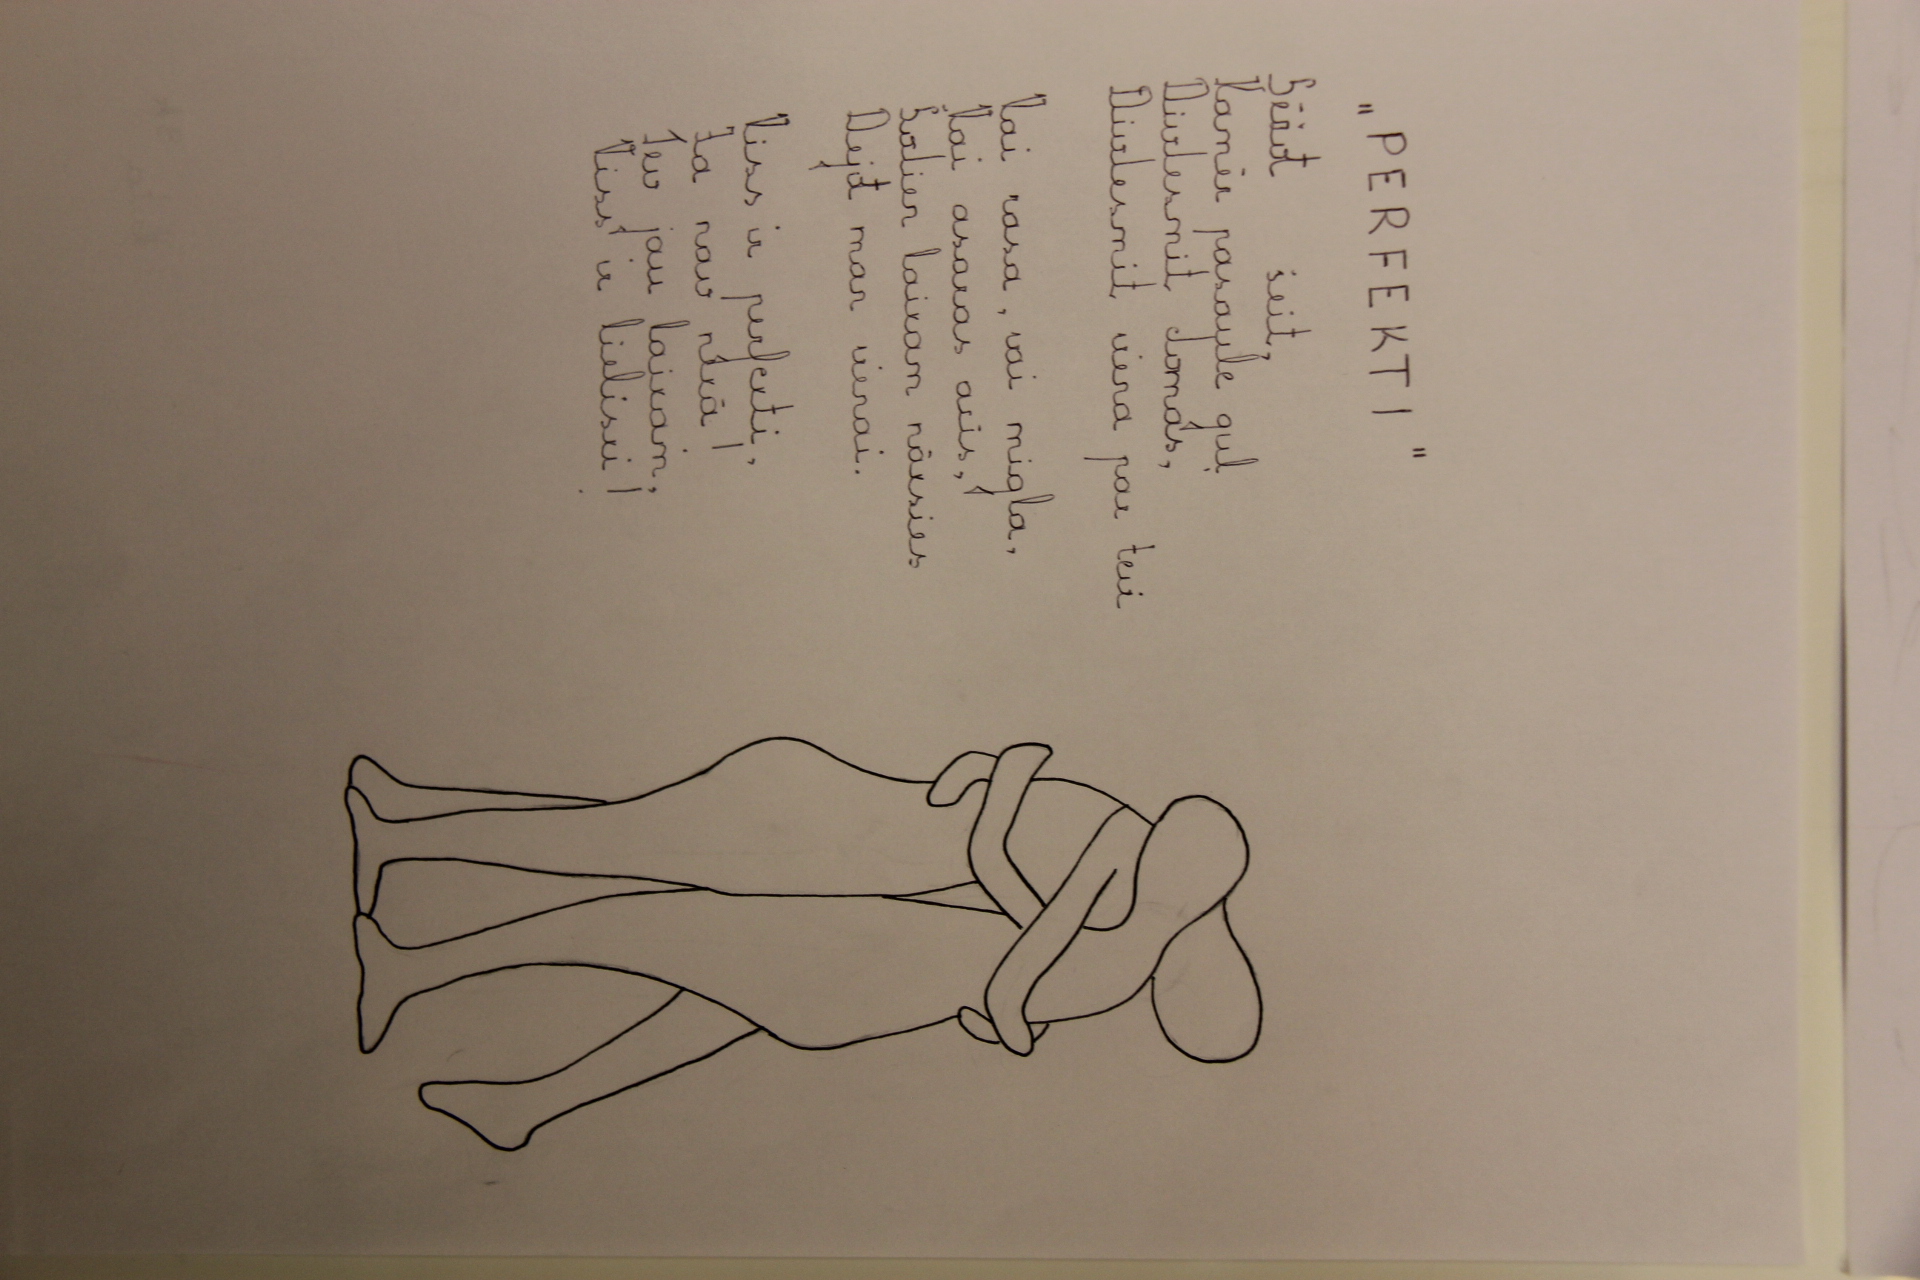 "PERFEKTI"
Sēžot šeit,
Kamēr pasaule guļ
Divdesmit domās,
Divdesmit viena par tevi
Vai rasa, vai migla,
Vai asaras acīs,
Šodien laikam nāksies
Dejot man vienai.
Viss ir perfekti,
Ja nav nekā!
Tev jau laikam,
Viss ir lieliski!